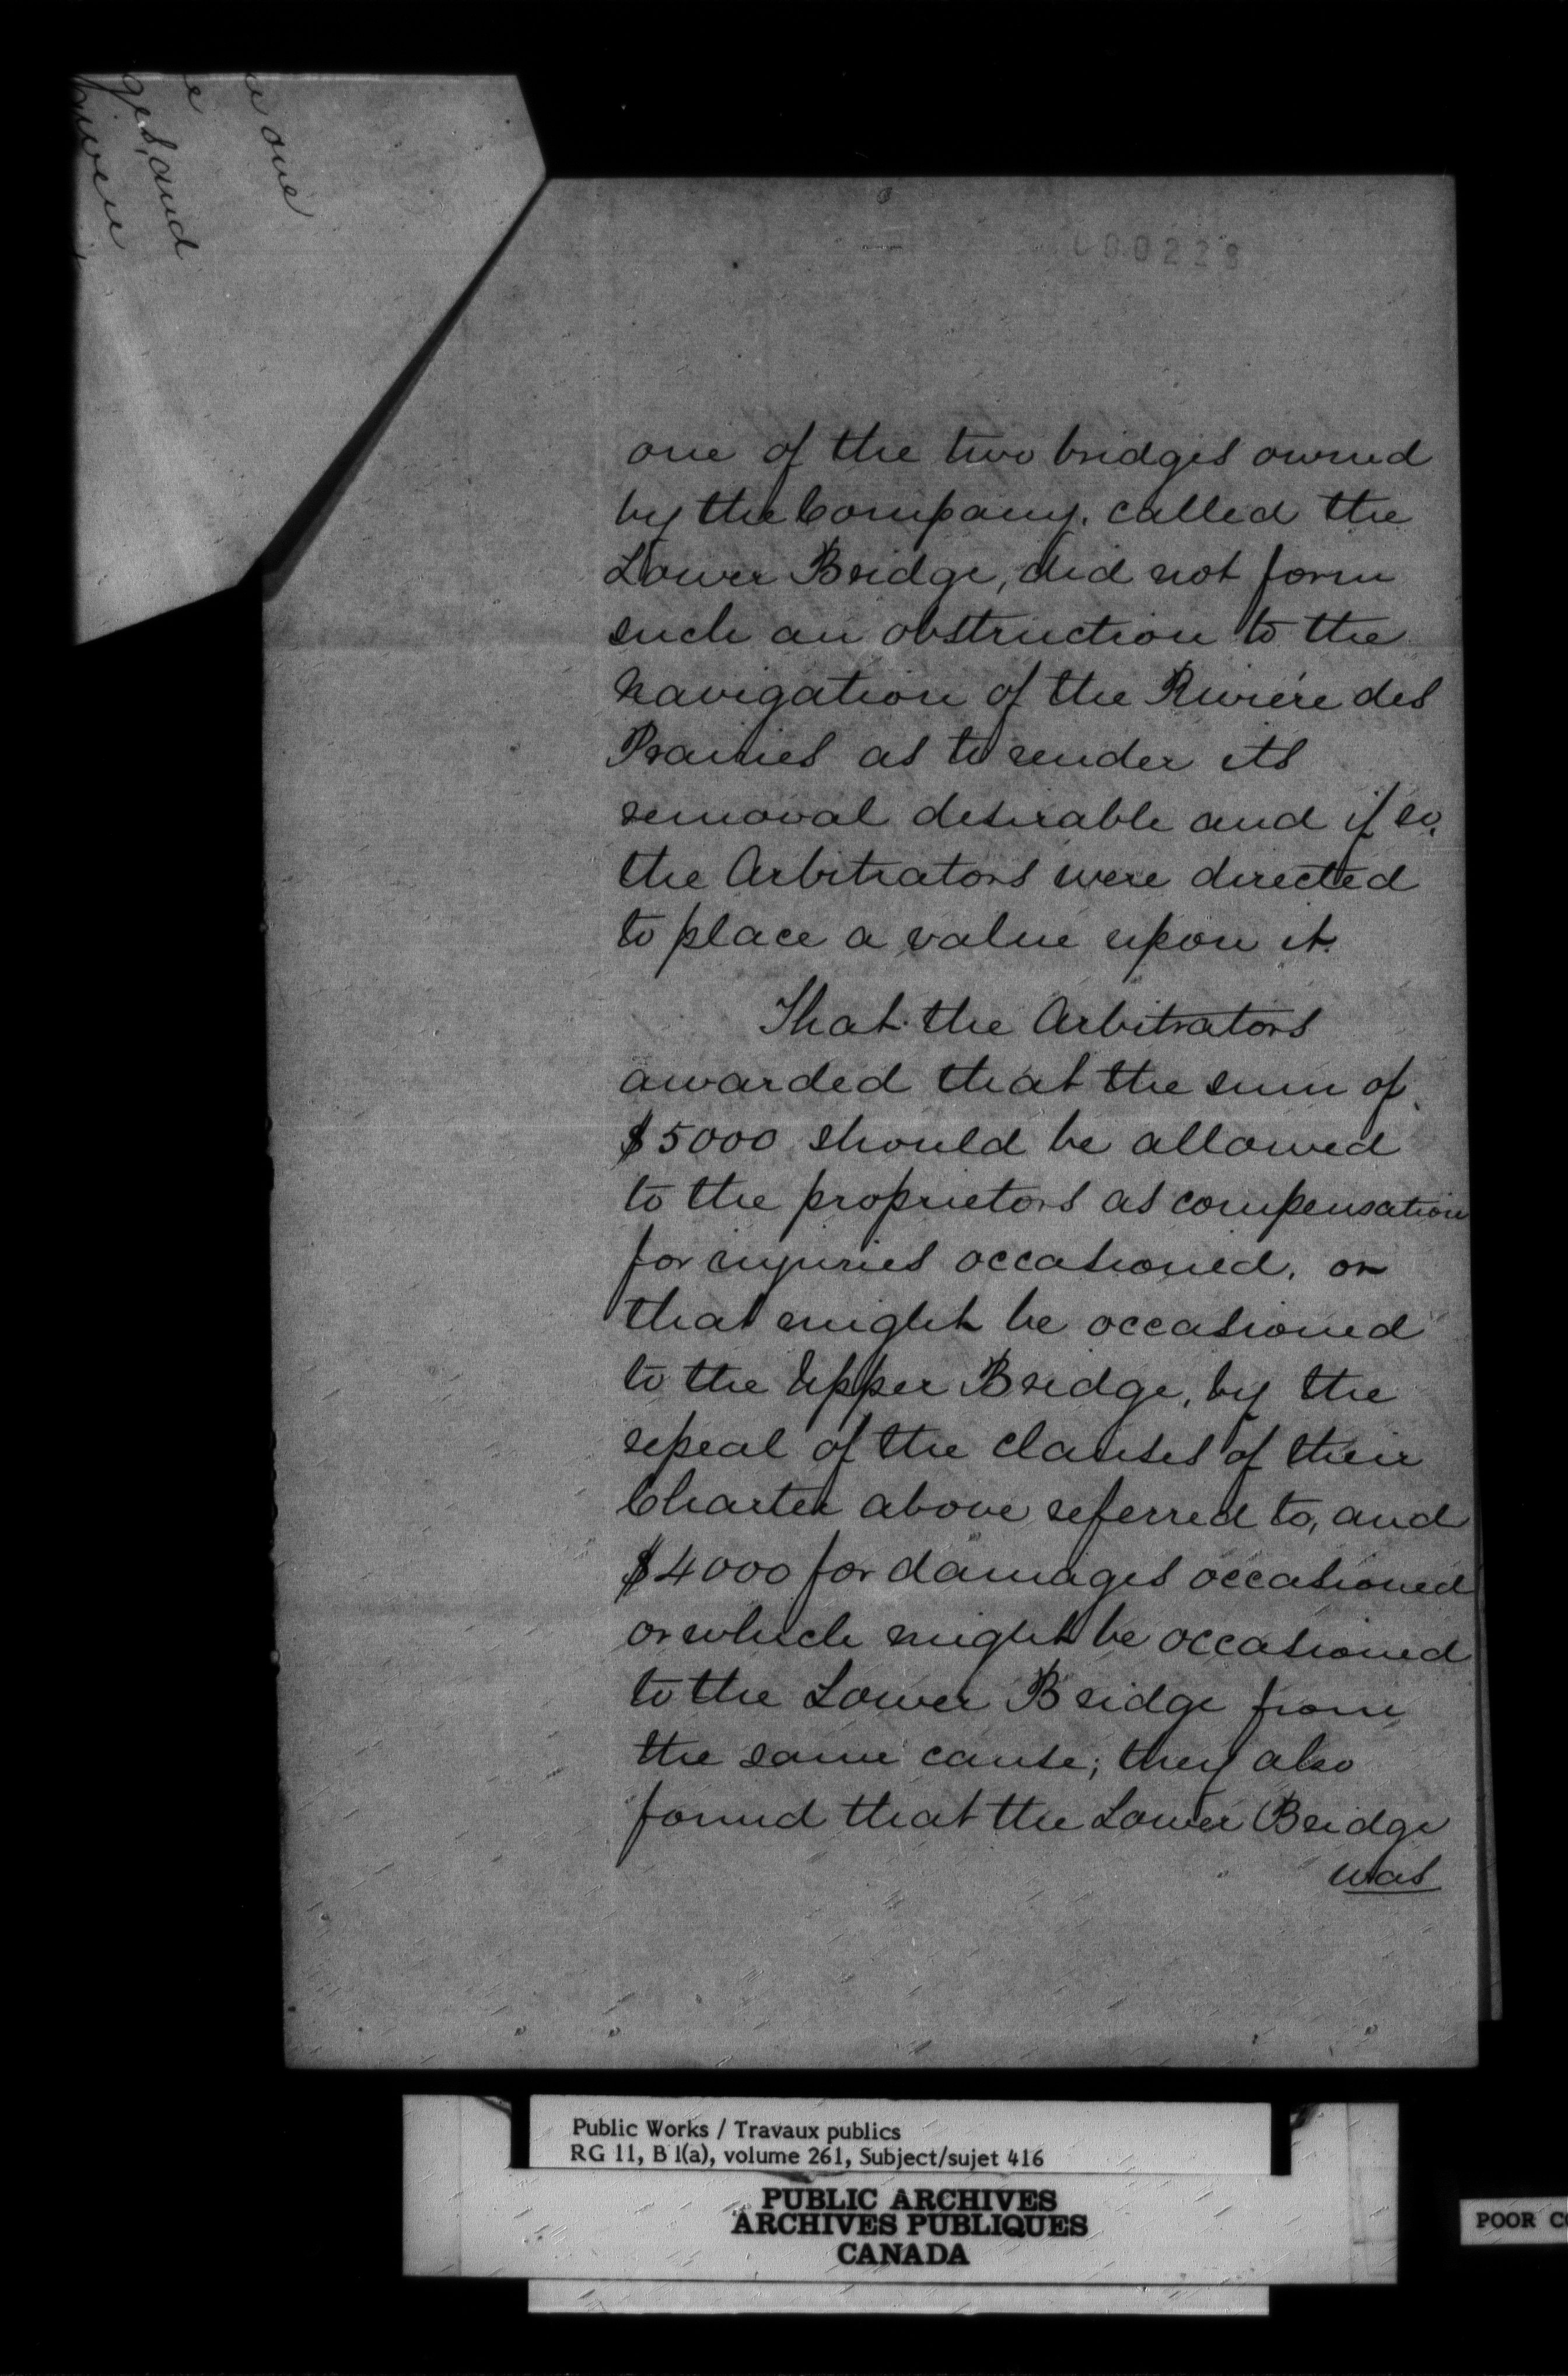 one
ges, and
000228
one of the two bridges owned
by the Company, called the
Lower Bridge, did not form
such an obstruction to the
navigation of the Rivière des
Prairies as to render its
removal desirable and if so,
the Arbitrators were directed
to place a value upon it.
That the Arbitrators
awarded that the sum of
$5000 should be allowed
to the proprietors as compensation
for injuries occasioned, or
that might be occasioned
to the Upper Bridge, by the
repeal of the clauses of their
Charter above referred to, and
$4000 for damages occasioned
or which might be occasioned
to the Lower Bridge from
the same cause; they also
found that the Lower Bridge
was
Public Works / Travaux publics
RG 11, B 1(a), volume 261, Subject/sujet 416
PUBLIC ARCHIVES
ARCHIVES PUBLIQUES
CANADA
POOR